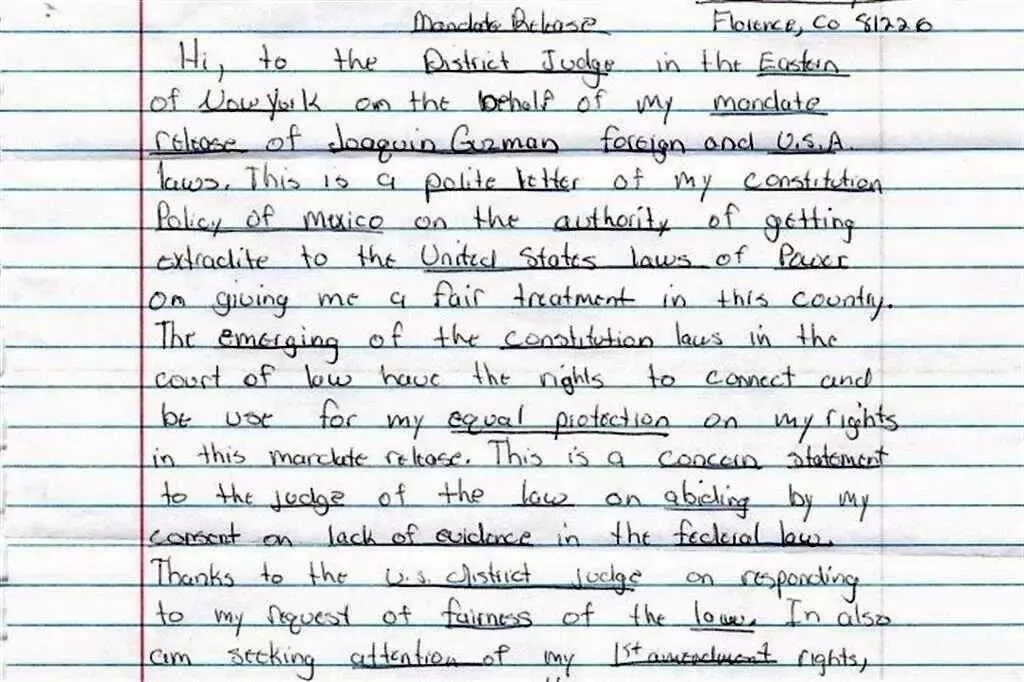 Mandate Release Florence, Co 81226
Hi, to the District Judge in the Eastern
of New York on the behalf of my mandate
release of Joaquin Guzman foreign and U.S.A.
laws. This is a polite letter of my constitution
Policy of mexico on the authority of getting
extradite to the United States laws of Power
on giving me a fair treatment in this country.
The emerging of the constitution laws in the
court of law have the rights to connect and
be use for my equal protection on my rights
in this mandate release. This is a concern statement
to the judge of the law on abiding by my
consent on lack of evidence in the federal law.
Thanks to the U.S. district judge on responding
to my request of fairness of the law. In also
am seeking attention of my 1st amendment rights,